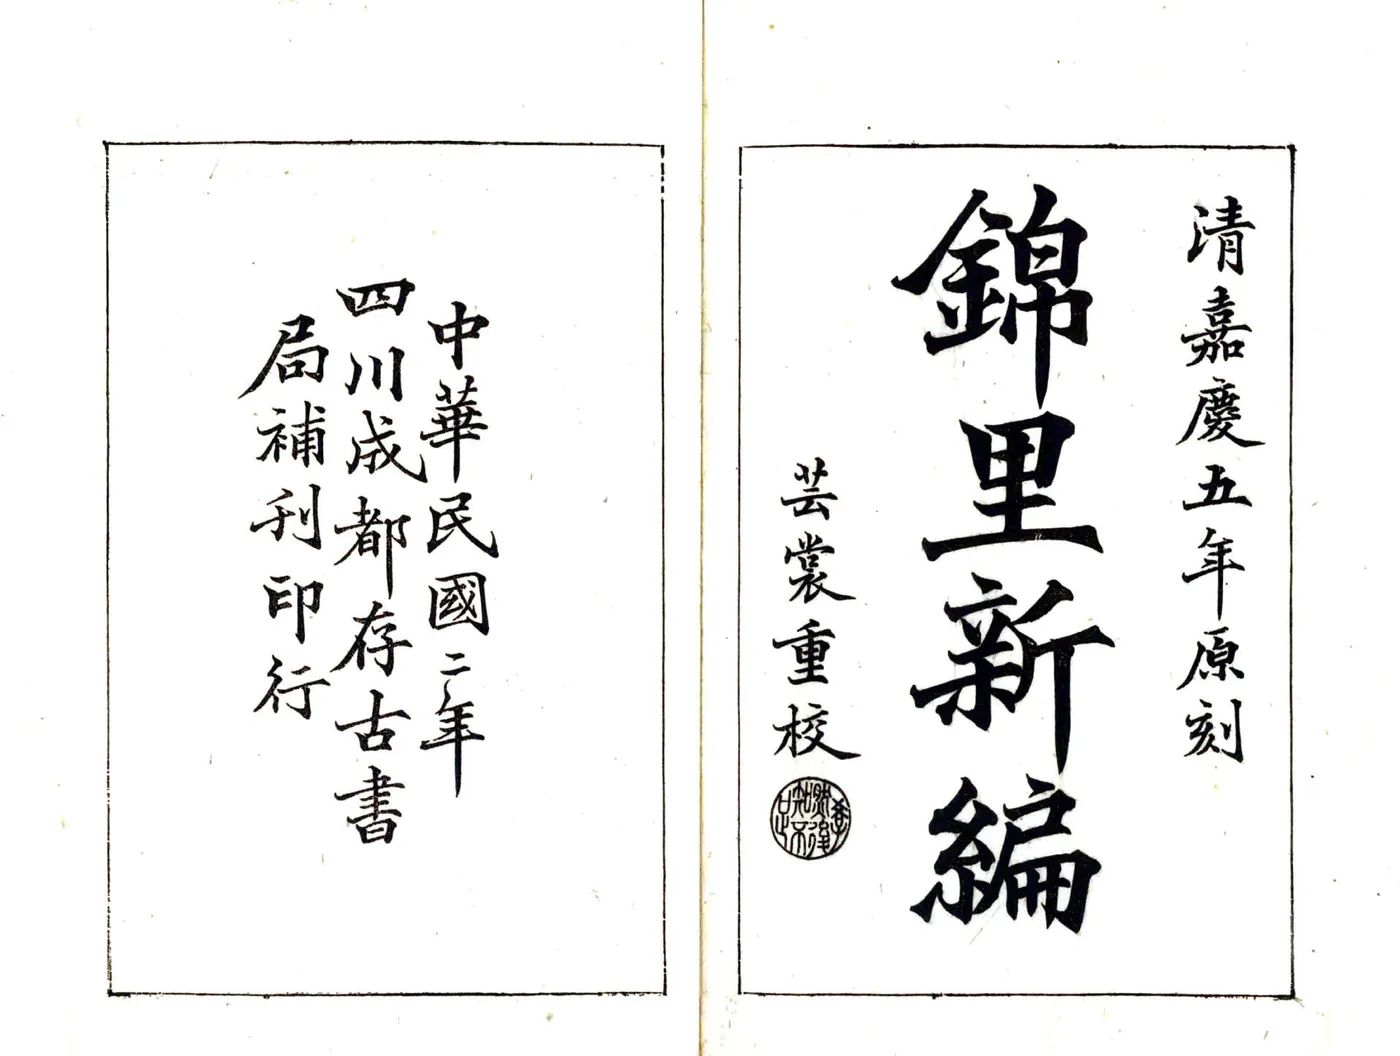 清嘉慶五年原刻
錦里新編
芸裳重校
中華民國二年
四川成都存古書
局補刊印行